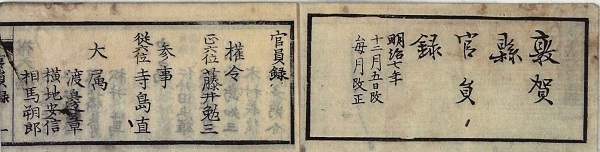 敦賀
縣
官員
録
明治七年
十二月五日改
毎月改正
官員録
権令
正六位藤井勉三
参事
従六位寺島直
大属
渡邊章
横地安信
相馬朔郎